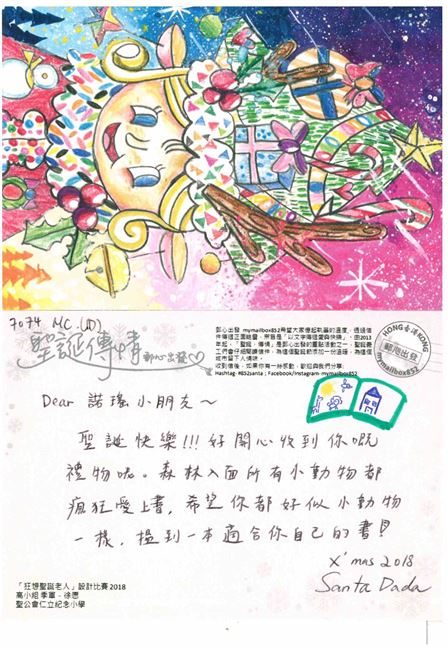 7074 MC (JD)
聖誕傳情
郵心出發♡
郵心出發 mymailbox852希望大家慢起執著的溫度，透過信
件傳遞正面訊息，宗旨是「以文字傳遞愛與快樂」，由2013
年起，「聖誕．傳情」是郵心出發的重點活動之一，聖誕義
工們會仔細閱讀信件，為這個聖誕節添加一份溫暖，為這個
城市留下人情味。
收到信後，如果你有一絲感動，歡迎與我們分享:
Hashtag- #852santa ; Facebook/Instagram- mymailbox852
HONG 香港 KONG
郵心出發
mymailbox852
Dear 諾瑤小朋友～
聖誕快樂!!! 好開心收到你嘅
禮物呢。森林入面所有小動物都
瘋狂愛上書，希望你都好似小動物
一樣，搵到一本適合你自己的書!
X'mas 2018
Santa Dada
「狂想聖誕老人」設計比賽 2018
高小組季軍 - 徐恩
聖公會仁立紀念小學